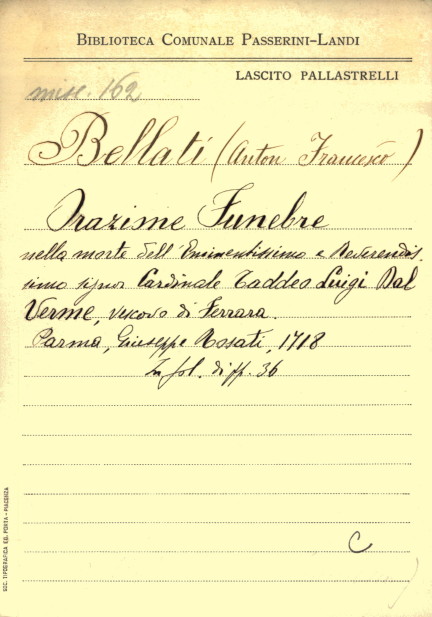 BIBLIOTECA COMUNALE PASSERINI-LANDI
LASCITO PALLASTRELLI
misc. 162
Bellati (Anton Francesco)
Orazione Funebre
nella morte dell'Eminentissimo e Reverendis.
simo signor Cardinale Taddeo Luigi Dal
Verme, vescovo di Ferrara.
Parma, Giuseppe Rosati, 1718
In fol. di ff. 36
C
SOC. TIPOGRAFICA ED. PORTA - PIACENZA